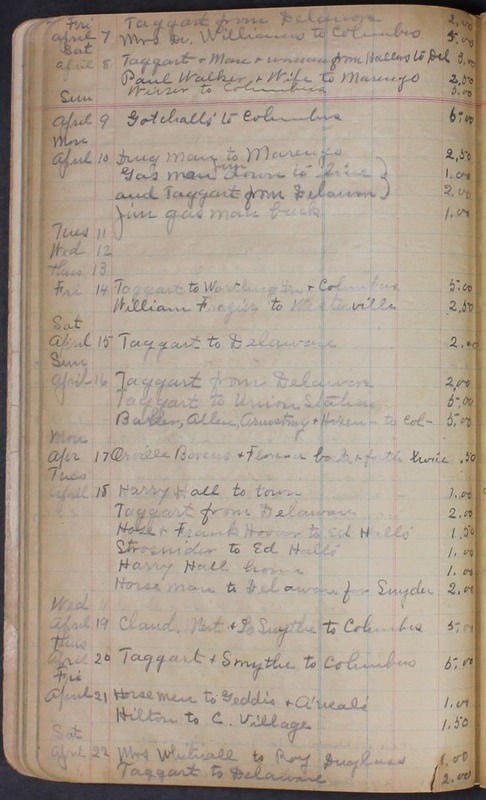 Fri Taggart from Delawon 2.00
April 7 Mrs Dr. Williams to Columbus 5.00
Sat
April 8 Taggart + Man + woman from Halls to Del 3.00
Paul Walker + Wife to Marengo 2.50
to Columbus 5.00
Sun
April 9 Gotchalls to Columbus 5.00
Mon
April 10 Drug man to Marengo 2.50
Gas man down to line } 1.00
and Taggart from Delawon } 2.00
Jim gas man back 1.00
Tues 11
Wed 12
Thus 13
Fri 14 Taggart to Worthington + Columbus 5.00
William Frazier to Westerville 2.50
Sat
April 15 Taggart to Delaware 2.00
Sun
April 16 Taggart from Delawon 2.00
Taggart to Union Station 5.00
Allen, Armstrong + to Col- 5.00
Mon
Apr 17 Orville + back + forth twice .50
Tues
April 18 Harry Hall to town 1.00
Taggart from Delaware 2.00
Hose + Frank Hoover to Ed Halls 1.50
Strosnider to Ed Halls 1.00
Harry Hall home 1.00
Horse man to Delaware for Snyder 2.00
Wed
April 19 Claud, + Smythe to Columbus 5.00
Thus
April 20 Taggart + Smythe to Columbus 5.00
Fri
April 21 Horsemen to Geddis + 1.00
Hilton to C. Village 1.50
Sat
April 22 Mrs Whitnall to Roy 1.00
Taggart to Delaware 2.00